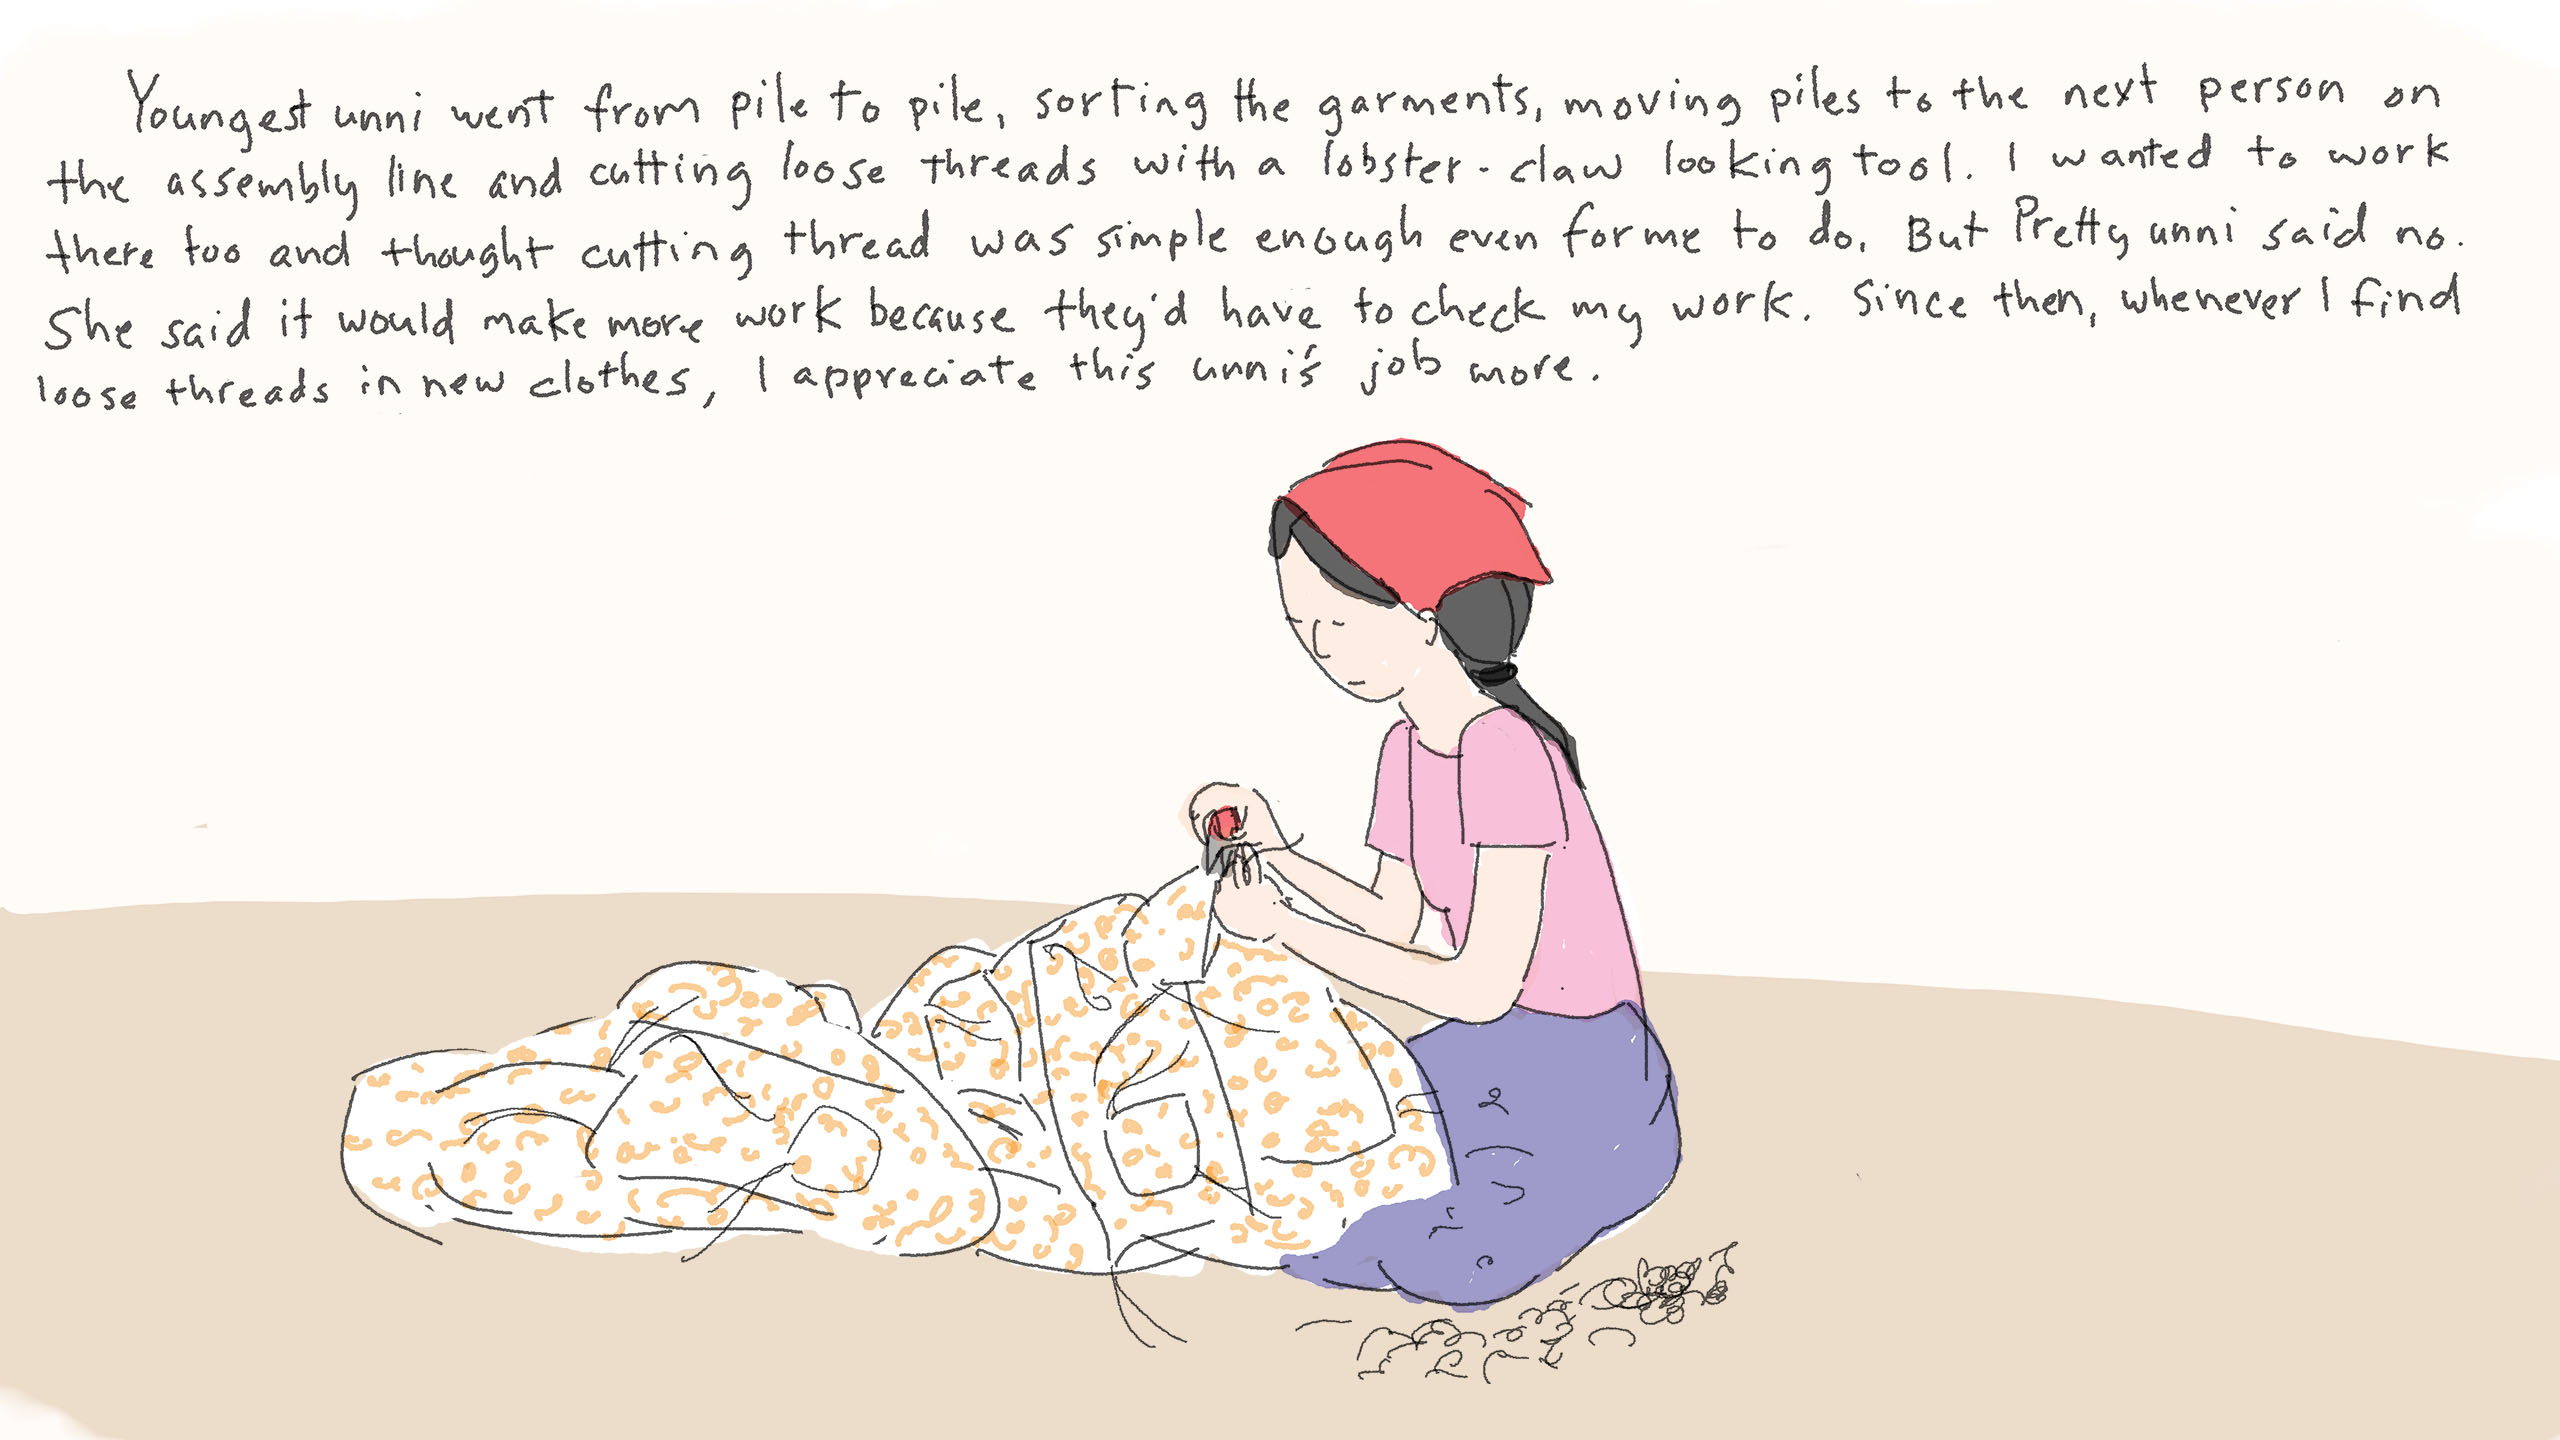 Youngest unni went from pile to pile, sorting the garments, moving piles to the next person on
the assembly line and cutting loose threads with a lobster-claw looking tool. I wanted to work
there too and thought cutting thread was simple enough even for me to do. But Pretty unni said no.
She said it would make more work because they'd have to check my work. Since then, whenever I find
loose threads in new clothes, I appreciate this unni's job more.